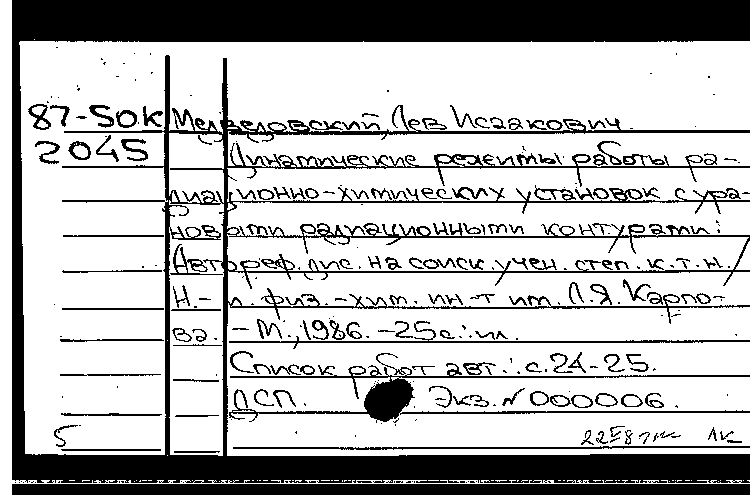 87-50к Медведовский, Лев Исаакович.
2045 Динамические режимы работы ра-
диационно-химических установок с ура-
новыми радиационными контурами:
Автореф. дис. на соиск. учен. степ. к.т.н. /
Н.-и. физ.-хим. ин-т им. Л.Я. Карпо-
ва. - М., 1986. - 25с.: ил.
Список работ авт.: с.24-25.
ДСП. Экз. N 000006.
5 ЛК